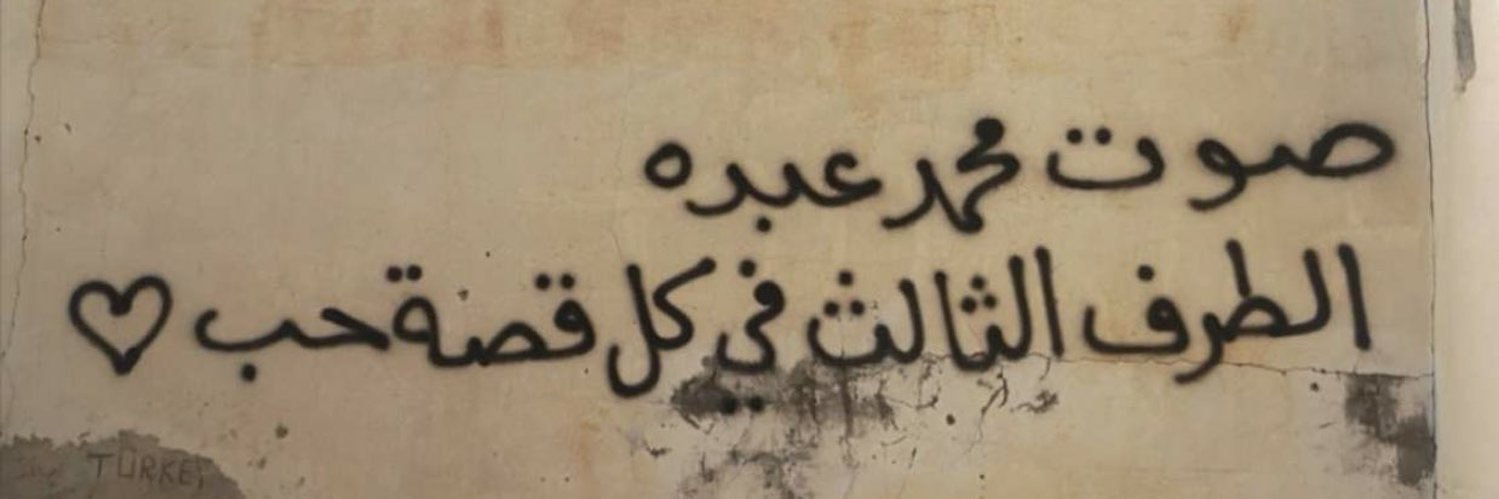 صوت محمد عبده
الطرف الثالث في كل قصة حب ♡
TURKEY